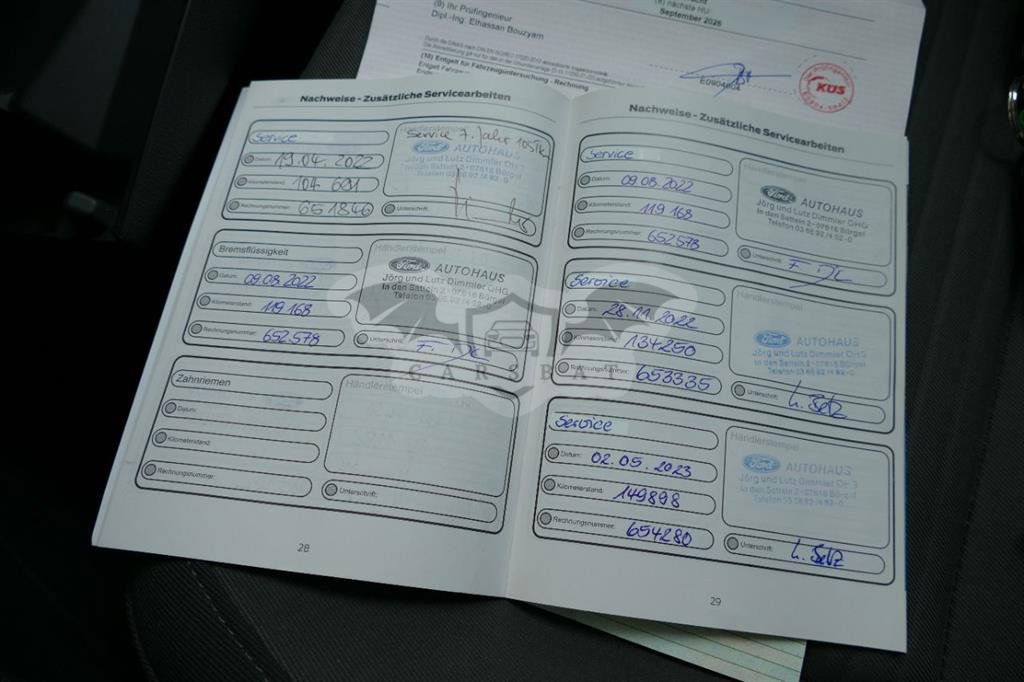 (9) nächste HU
September 2026
(9) Ihr Prüfingenieur
Dipl.-Ing. Elhassan Bouzyam
(10) Entgelt für Fahrzeuguntersuchung - Rechnung
E0904604
KUS
Nachweise - Zusätzliche Servicearbeiten
Service
Datum: 19.04.2022
Kilometerstand: 104 691
Rechnungsnummer: 651846
Service 7. Jahr 105Tkm
Ford AUTOHAUS
Jörg und Lutz Dimmler OHG
In den Satteln 2-07616 Bürgel
Telefon 03 66 92/4 92-0
Unterschrift:
Bremsflüssigkeit
Datum: 09.08.2022
Kilometerstand: 119 168
Rechnungsnummer: 652578
Händlerstempel
Ford AUTOHAUS
Jörg und Lutz Dimmler OHG
In den Satteln 2 - 07616 Bürgel
Telefon 03 66 92/4 92-0
Unterschrift:
Zahnriemen
Datum:
Kilometerstand:
Rechnungsnummer:
Händlerstempel
Unterschrift:
28
Nachweise - Zusätzliche Servicearbeiten
Service
Datum: 09.08.2022
Kilometerstand: 119 168
Rechnungsnummer: 652578
Händlerstempel
Ford AUTOHAUS
Jörg und Lutz Dimmler OHG
In den Satteln 2 - 07616 Bürgel
Telefon 03 66 92/4 92-0
Unterschrift:
Service
Datum: 28.11.2022
Kilometerstand: 134250
Rechnungsnummer: 653335
Händlerstempel
Ford AUTOHAUS
Jörg und Lutz Dimmler OHG
In den Satteln 2-07616 Bürgel
Telefon 03 66 92/4 92-0
Unterschrift:
Service
Datum: 02.05.2023
Kilometerstand: 149898
Rechnungsnummer: 654280
Händlerstempel
Ford AUTOHAUS
Jörg und Lutz Dimmler OHG
In den Satteln 2-07616 Bürgel
Telefon 03 66 92/4 92-0
Unterschrift:
29
CARSBAT